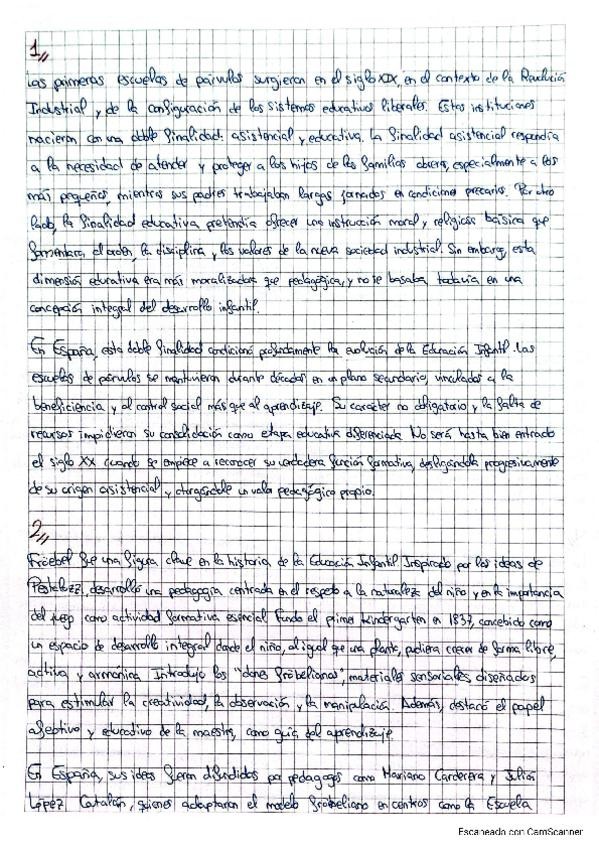 1,,
Las primeras escuelas de párvulos surgieron en el siglo XIX, en el contexto de la Revolución
Industrial y de la configuración de los sistemas educativos liberales. Estas instituciones
nacieron con una doble finalidad: asistencial y educativa. La finalidad asistencial respondía
a la necesidad de atender y proteger a los hijos de las familias obreras, especialmente a los
más pequeños, mientras sus padres trabajaban largas jornadas en condiciones precarias. Por otro
lado, la finalidad educativa pretendía ofrecer una instrucción moral y religiosa básica que
fomentara el orden, la disciplina y los valores de la nueva sociedad industrial. Sin embargo, esta
dimensión educativa era más moralizadora que pedagógica, y no se basaba todavía en una
concepción integral del desarrollo infantil.
En España, esta doble finalidad condicionó profundamente la evolución de la Educación Infantil. Las
escuelas de párvulos se mantuvieron durante décadas en un plano secundario, vinculadas a la
beneficiencia y al control social más que al aprendizaje. Su carácter no obligatorio y la falta de
recursos impidieron su consolidación como etapa educativa diferenciada. No será hasta bien entrado
el siglo XX cuando se empiece a reconocer su verdadera función formativa, desligándola progresivamente
de su origen asistencial y otorgándole un valor pedagógico propio.
2,,
Fröebel fue una figura clave en la historia de la Educación Infantil. Inspirado por las ideas de
Pestalozzi, desarrolló una pedagogía centrada en el respeto a la naturaleza del niño y en la importancia
del juego como actividad formativa esencial. Fundó el primer kindergarten en 1837, concebido como
un espacio de desarrollo integral donde el niño, al igual que una planta, pudiera crecer de forma libre,
activa y armónica. Introdujo los "dones fröbelianos", materiales sensoriales, diseñados
para estimular la creatividad, la observación y la manipulación. Además, destacó el papel
afectivo y educativo de la maestra, como guía del aprendizaje.
En España, sus ideas fueron difundidas por pedagogos como Mariano Carderera y Julián
López Catalán, quienes adaptaron el modelo fröbeliano en centros como la Escuela
Escaneado con CamScanner